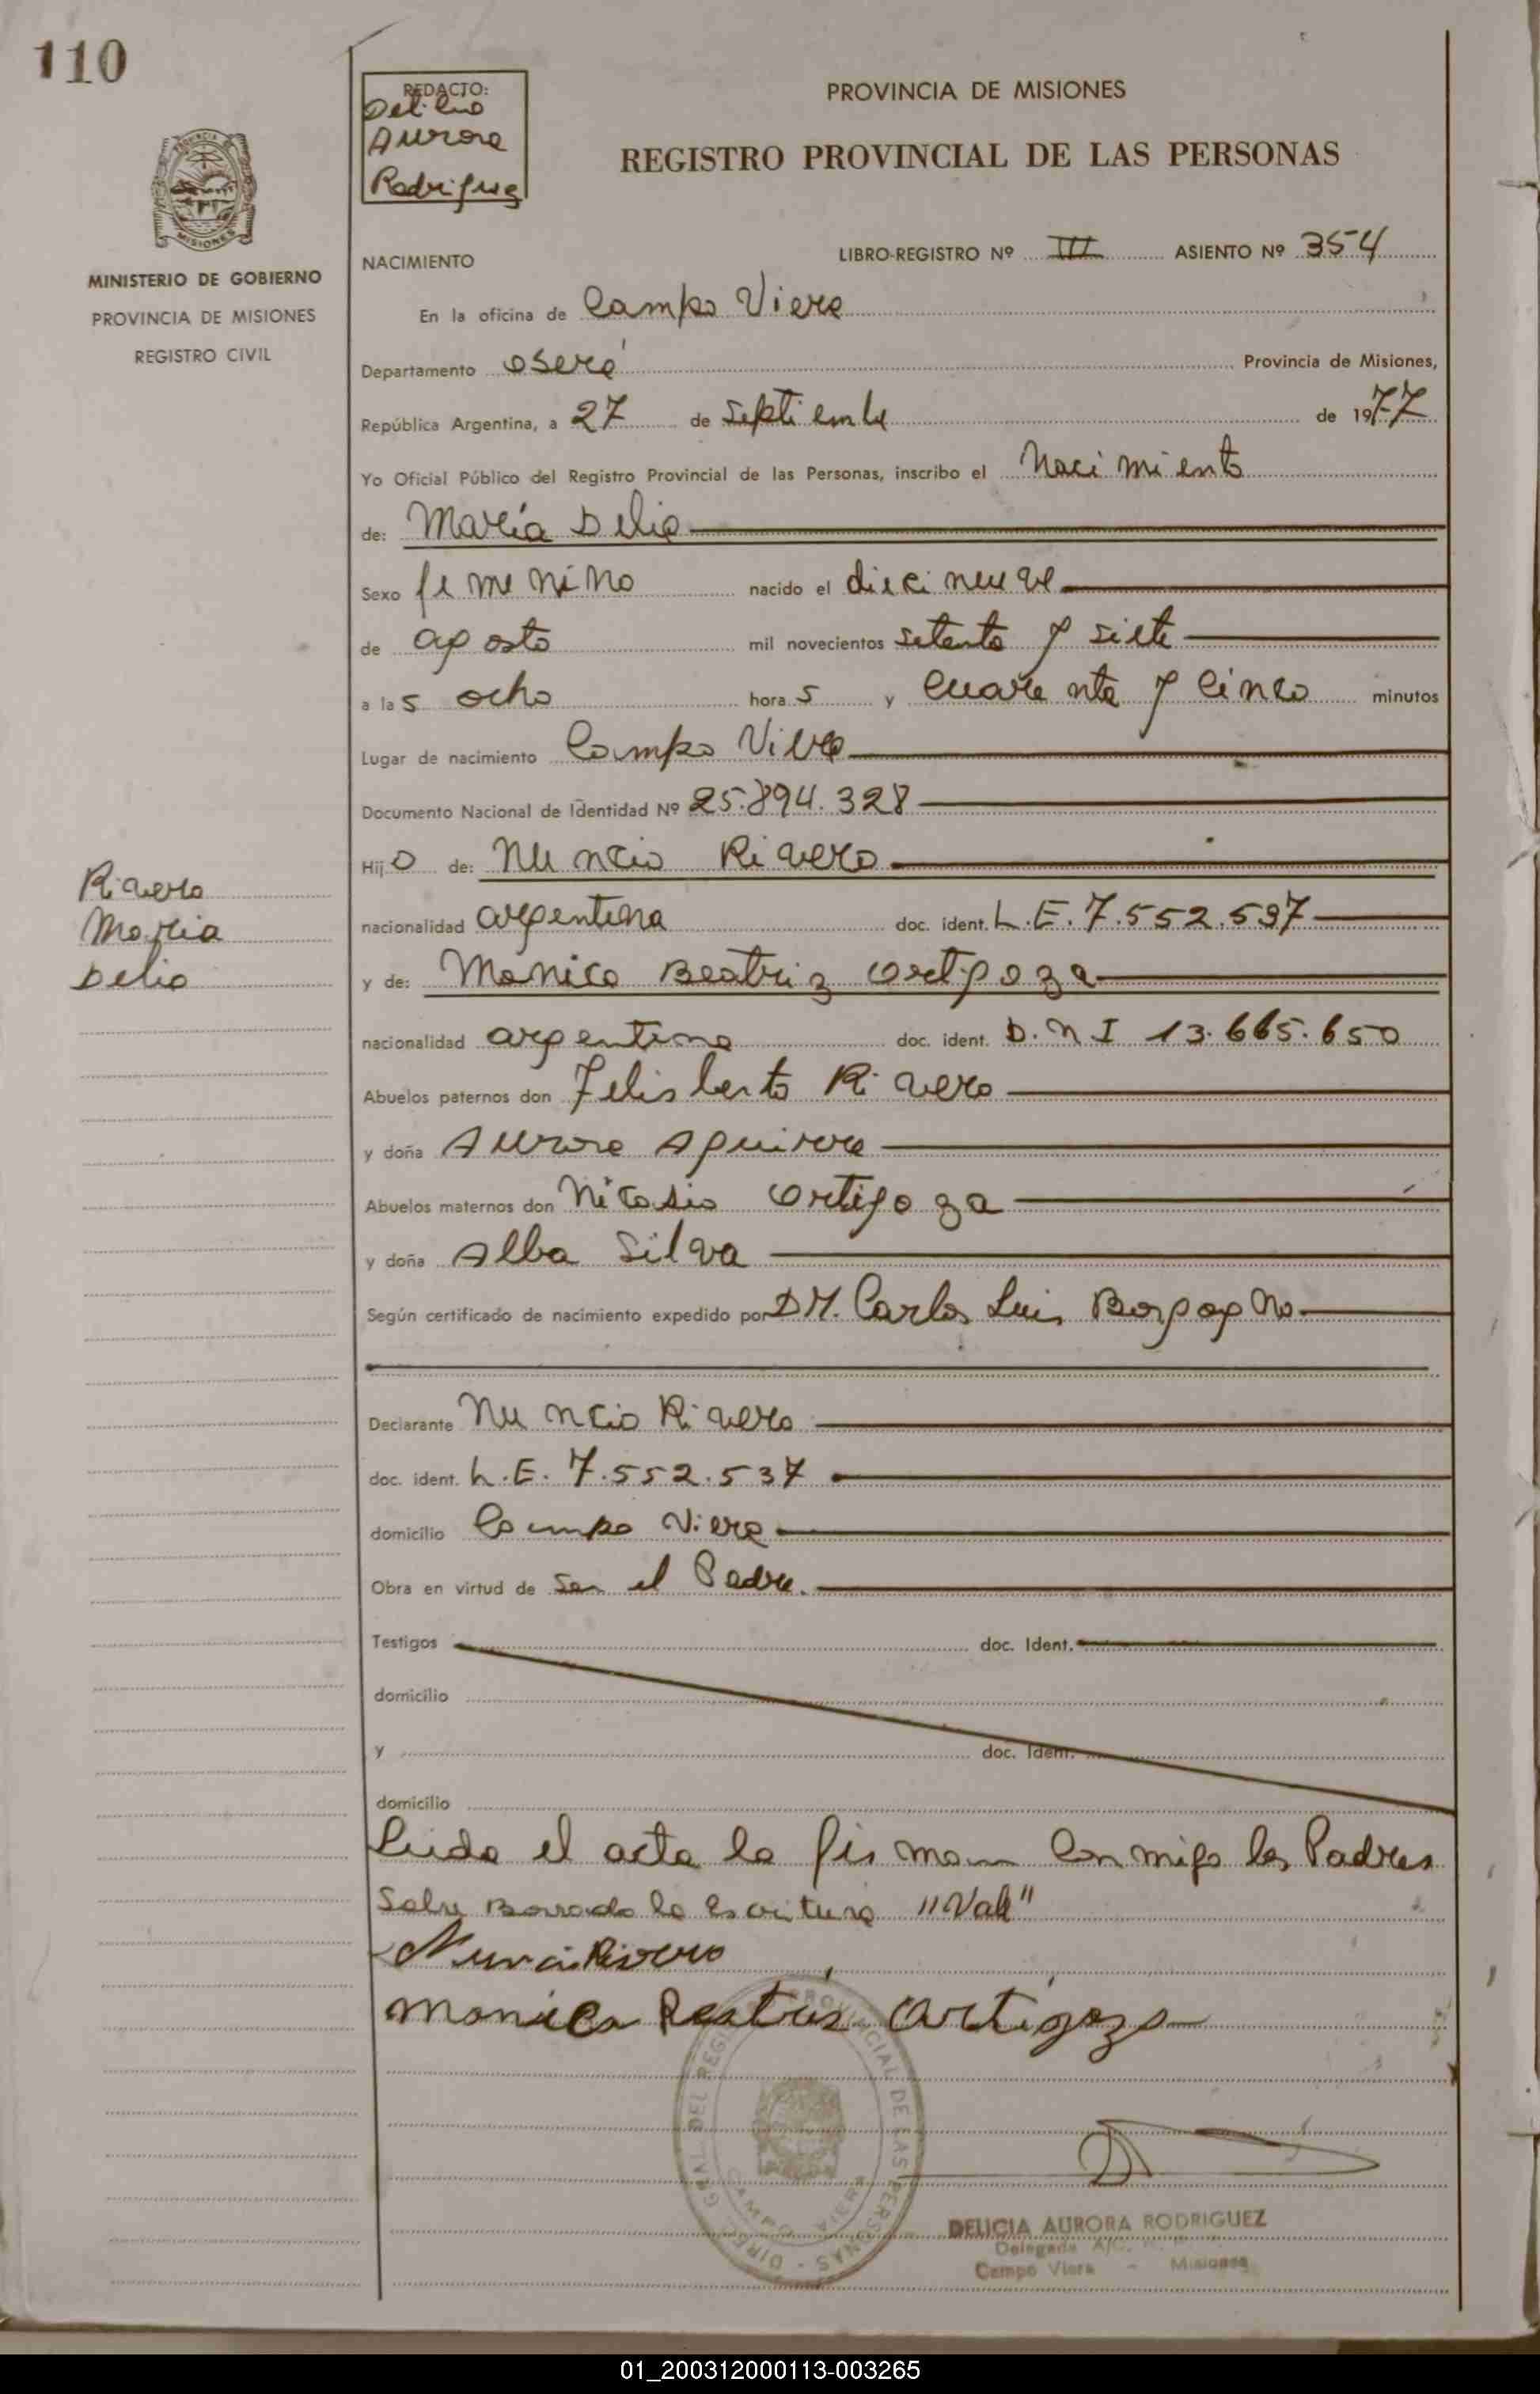 110
REDACTO:
Aurora
Rodriguez
PROVINCIA DE MISIONES
REGISTRO PROVINCIAL DE LAS PERSONAS
MISIONES
MINISTERIO DE GOBIERNO
PROVINCIA DE MISIONES
REGISTRO CIVIL
NACIMIENTO
LIBRO-REGISTRO Nº III ASIENTO Nº 354
En la oficina de Campo Viera
Departamento Oberá Provincia de Misiones,
República Argentina, a 27 de Septiembre de 1977
Yo Oficial Público del Registro Provincial de las Personas, inscribo el Nacimiento
de: María Delia
Sexo femenino nacido el diecinueve
de agosto mil novecientos setenta y siete
a las ocho horas y cuarenta y cinco minutos
Lugar de nacimiento Campo Viera
Documento Nacional de Identidad Nº 25.894.328
Hijo de: Nuncio Rivero
nacionalidad argentina doc. ident. L.E. 7.552.537
y de: Monica Beatriz Ortigoza
nacionalidad argentina doc. ident. D.N.I 13.665.650
Abuelos paternos don Felisberto Rivero
y doña Aurora Aguirre
Abuelos maternos don Nicasio Ortigoza
y doña Alba Silva
Según certificado de nacimiento expedido por DM. Carlos Luis
Declarante Nuncio Rivero
doc. ident. L.E. 7.552.537
domicilio Campo Viera
Obra en virtud de ser el Padre.
Testigos doc. Ident.
domicilio
y doc. Ident.
domicilio
Leida el acta la firman conmigo los Padres
Sobre Borrado la escritura "Vale"
Nuncio Rivero
Monica Beatris Ortigoza
Rivero
Maria
Delia
DIREC. GRAL. DEL REGISTRO PROVINCIAL DE LAS PERSONAS
CAMPO VIERA
DELICIA AURORA RODRIGUEZ
Delegada
Campo Viera - Misiones
01_200312000113-003265